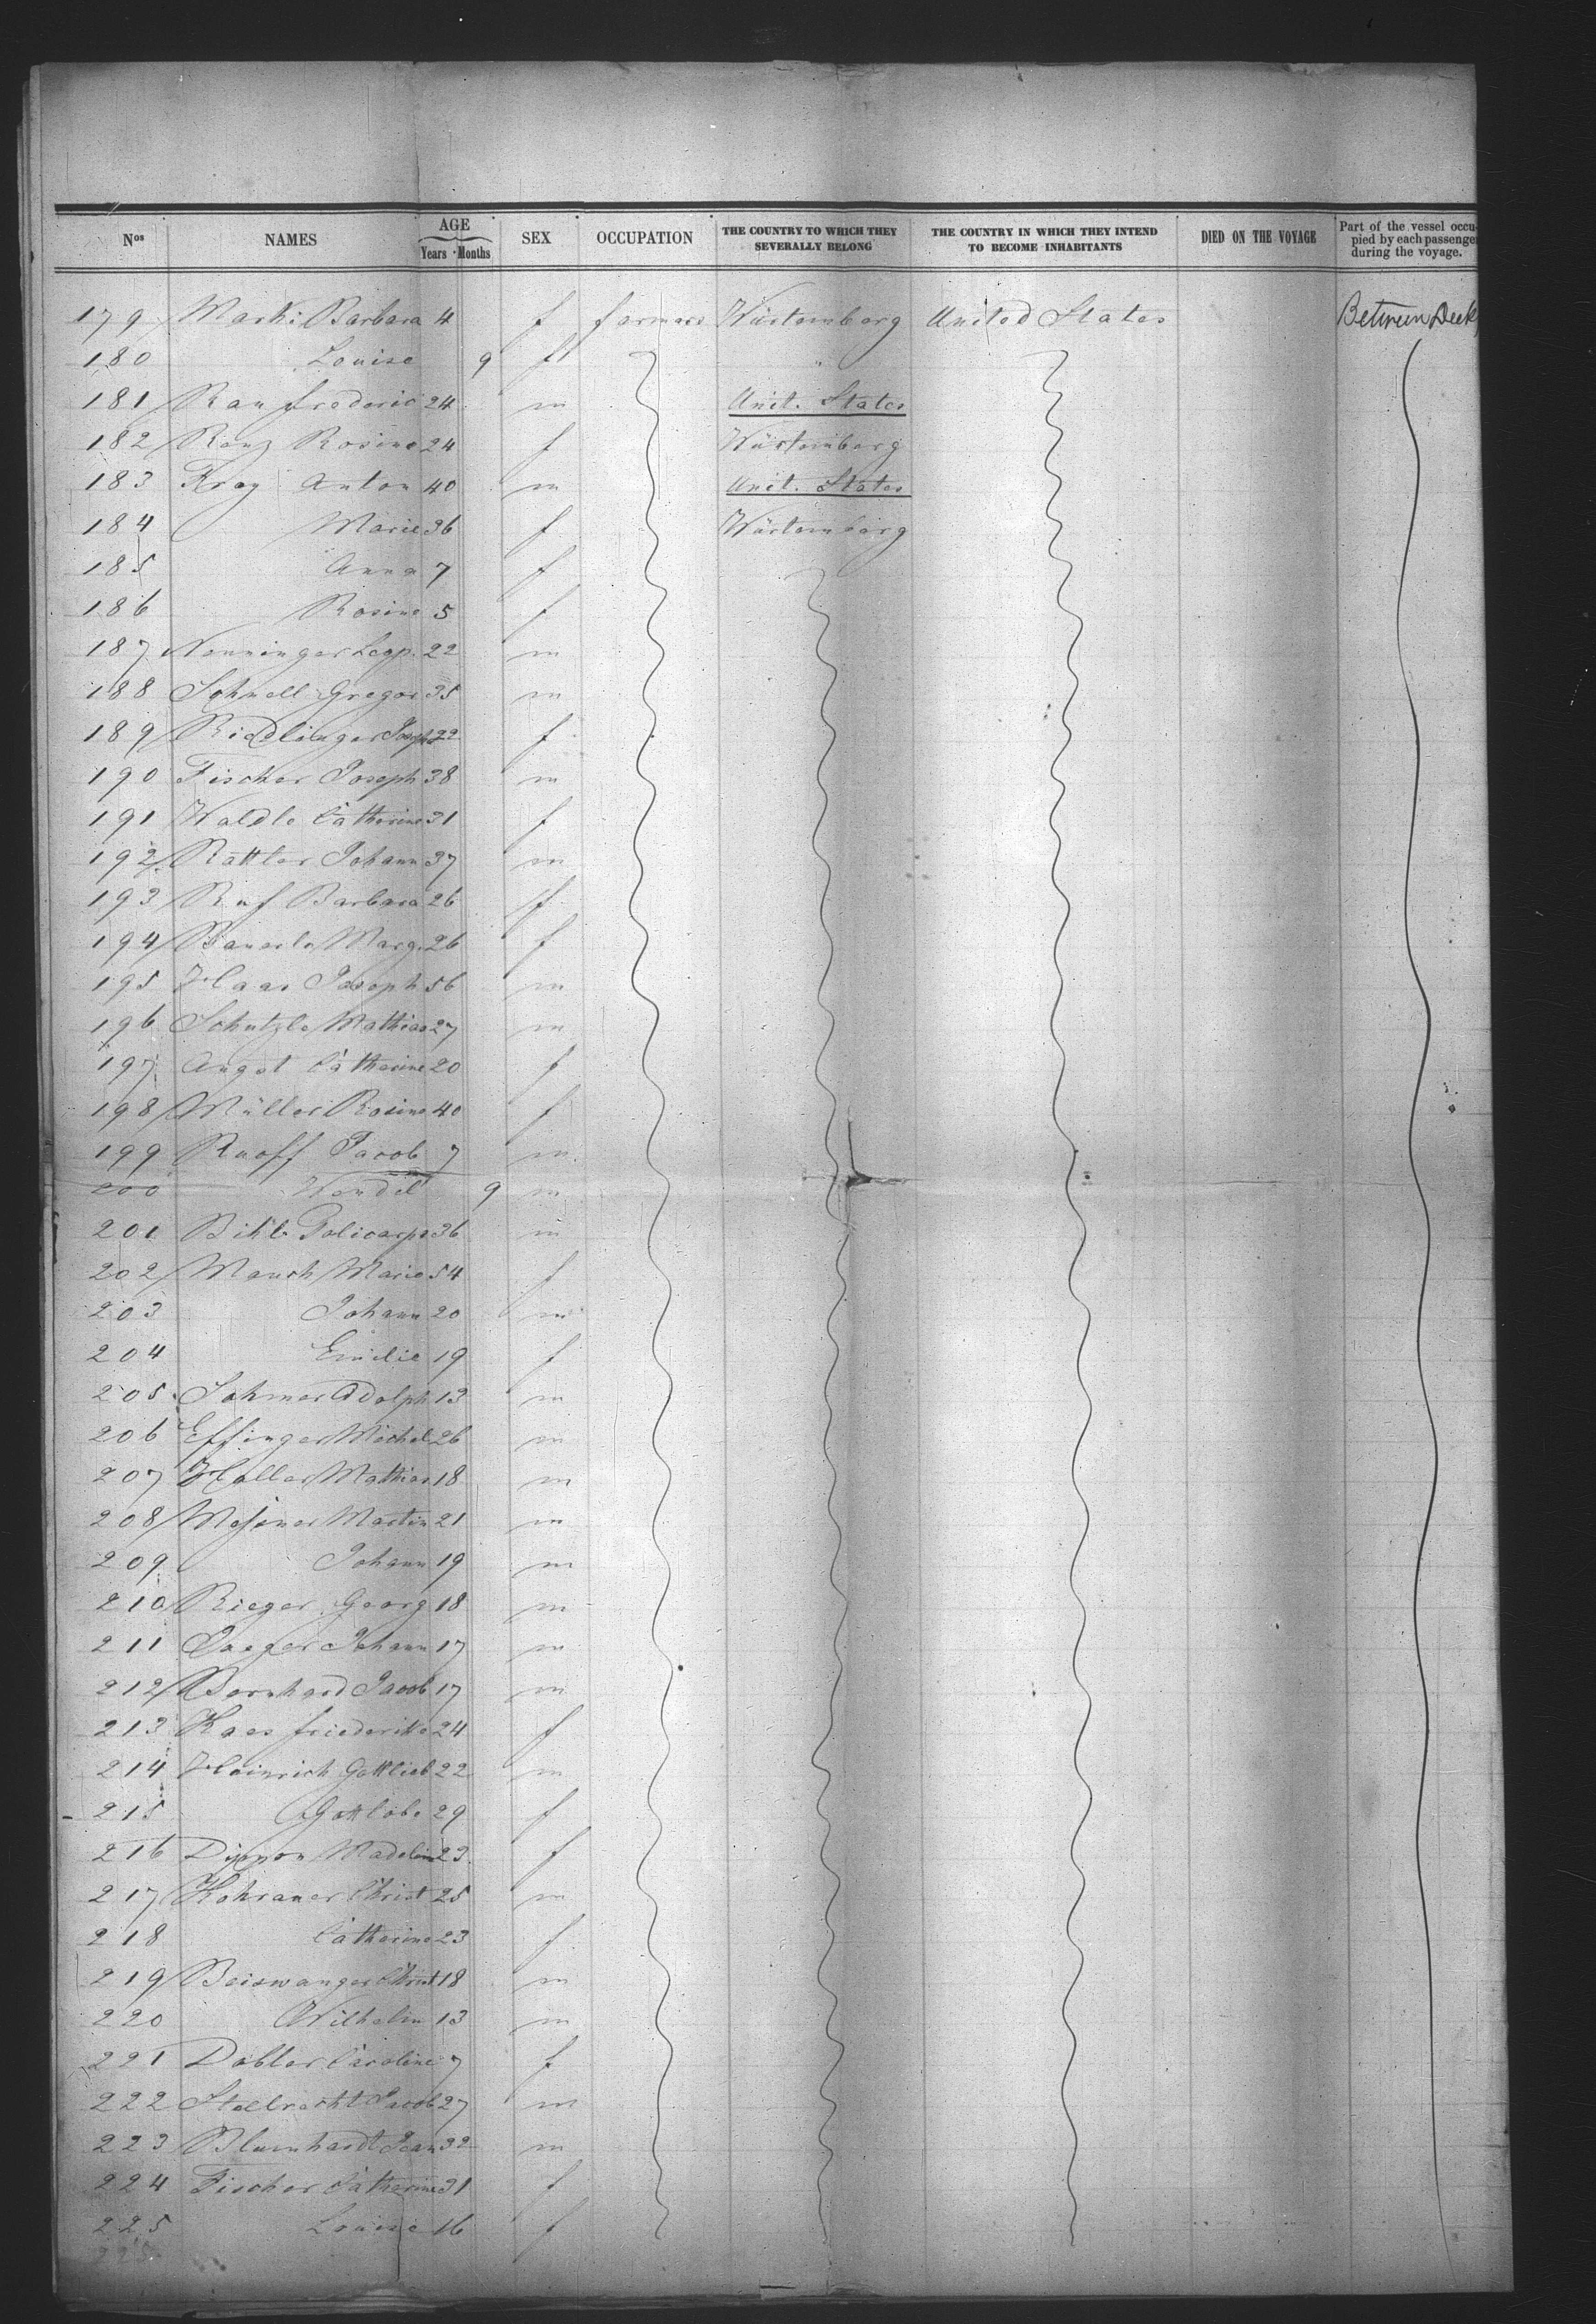 Nos NAMES AGE Years Months SEX OCCUPATION THE COUNTRY TO WHICH THEY SEVERALLY BELONG THE COUNTRY IN WHICH THEY INTEND TO BECOME INHABITANTS DIED ON THE VOYAGE Part of the vessel occupied by each passenger during the voyage.
179 Marki Barbara 4 f farmers Würtemberg United States Between Deck
180 Louise 9 f "
181 Rau frederic 24 m Unit. States
182 Renz Rosine 24 f Würtemberg
183 Anton 40 m Unit. States
184 Marie 36 f Würtemberg
185 Anna 7 f
186 Rosine 5 f
187 Nenninger Leop. 22 m
188 Schnell Gregor 35 m
189 Riedlinger Joseph 22 f
190 Fischer Joseph 38 m
191 Waldle Catherine 31 f
192 Rattler Johann 37 m
193 Ruf Barbara 26 f
194 Bauerle Marg. 26 f
195 Haas Joseph 56 m
196 Schutzle Mathias 27 m
197 Angst Catherine 20 f
198 Müller Rosine 40 f
199 Ruoff Jacob 7 m
200 Wendel 9 m
201 Bihl Policarp 36 m
202 Mauch Marie 54 f
203 Johann 20 m
204 Emilie 19 f
205 Adolph 13 m
206 Effinger Michel 26 m
207 Haller Mathias 18 m
208 Meſsner Martin 21 m
209 Johann 19 m
210 Rieger Georg 18 m
211 Jaeger Johann 17 m
212 Bernhard Jacob 17 m
213 Kaes friederike 24 f
214 Heinrich Gottlieb 22 m
215 Gottlobe 29 f
216 Dippon Madelin 23 f
217 Christ 25 m
218 Catherine 23 f
219 Beiswanger Christ 18 m
220 Wilhelm 13 m
221 Dobler Caroline 7 f
222 Stellrecht Jacob 27 m
223 Blumhardt Jean 32 m
224 Fischer Catherine 31 f
225 Louise 16 f